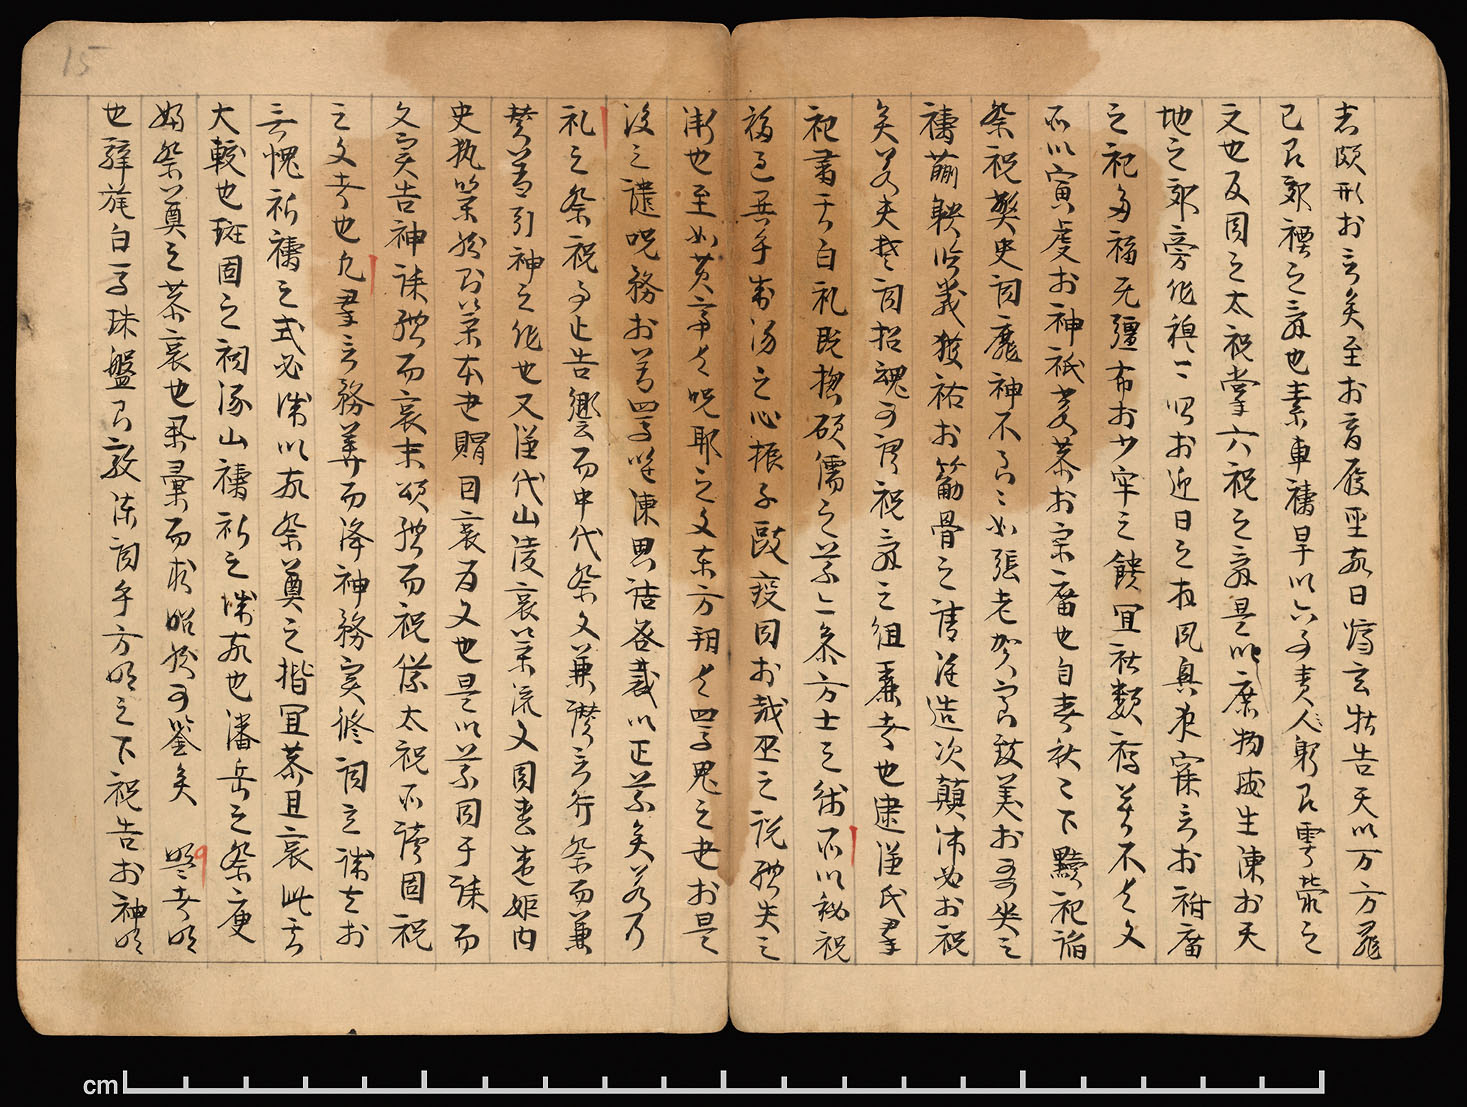 志頗形於言矣至於商履聖敬日躋玄牡告天以万方罪
己即郊禋之辞也素車禱旱以六事責人躬即雩禜之
文也及周之太祝掌六祝之辞是以庶物咸生陳於天
地之郊旁作穆〻唱於迎日之拜夙興夜寐言於祔廟
之祀多福无疆布於少牢之饋宜社類禡莫不有文
所以寅虔於神祇嚴恭於宗廟也自春秋已下黷祀諂
祭祝弊史詞靡神不至〻如張老賀室致美於哥哭之
禱蒯聵臨戰獲祐於筋骨之請雖造次顛沛必於祝
矣若夫楚詞招魂可謂祝辞之組麗者也逮漢氏羣
祀肅其百礼既揔碩儒之義亦參方士之術所以秘祝
移過異乎成湯之心振子敺疫同於越巫之説體失之
漸也至如黄帝有呪耶之文東方朔有罵鬼之書於是
後之譴呪務於善罵唯陳思詰咎裁以正義矣若乃
礼之祭祝事止告饗而中代祭文兼讚言行祭而兼
讃蓋引神之作也又漢代山陵哀策流文周喪盛姬内
史執策然則策本書賵因哀为文也是以義同于誄而
文實告神誄體而哀末頌體而祝儀太祝所讀固祝
之文者也凡羣言務華而降神務實修詞立誠在於
無愧祈禱之式必誠以敬祭奠之揩宜恭且哀此其
大較也班固之祠涿山禱祈之誠敬也潘岳之祭庾
婦祭奠之恭哀也舉彙而求昭然可鑒矣 盟者明
也騂旄白馬珠盤玉敦陳詞乎方明之下祝告於神明
15